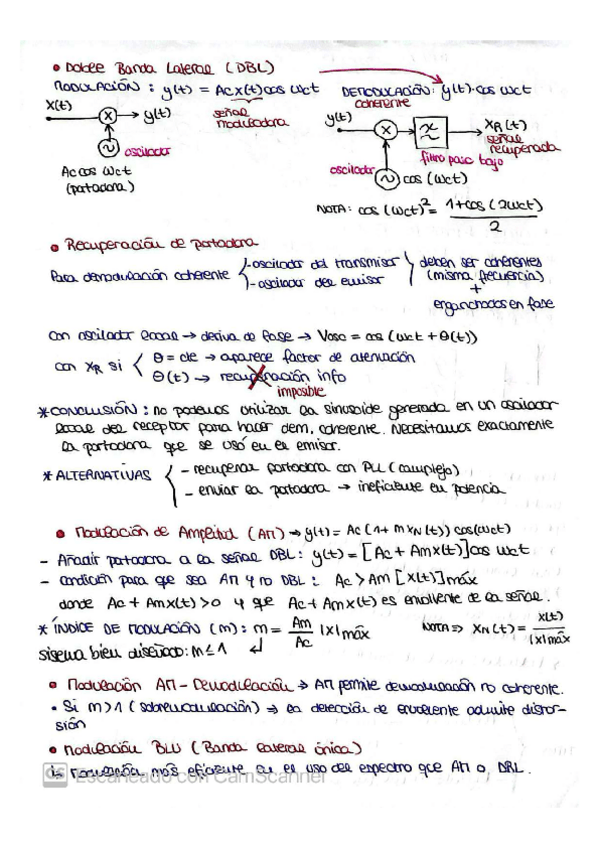 • Doble Banda Lateral (DBL)
MODULACIÓN : y(t) = Acx(t)cos wct DEMODULACIÓN: y(t)·cos wct
coherente
x(t) → y(t) señal moduladora
y(t) XR(t)
señal recuperada
oscilador
filtro paso bajo
Ac cos wct
(portadora)
oscilador cos (wct)
NOTA: cos (wct)² = 1+cos (2wct) / 2
• Recuperación de portadora
Para demodulación coherente - oscilador del transmisor deben ser coherentes
- oscilador del emisor (misma frecuencia)
+
enganchados en fase
Con oscilador local → deriva de fase → Vosc = cos (wct + θ(t))
con XR si θ = cte → aparece factor de atenuación
θ(t) → recuperación info
imposible
* CONCLUSIÓN : no podemos utilizar la sinusoide generada en un oscilador
local del receptor para hacer dem. coherente. Necesitamos exactamente
la portadora que se usó en el emisor.
* ALTERNATIVAS - recuperar portadora con PLL (complejo)
- enviar la portadora → ineficiente en potencia
• Modulación de Amplitud (AM) → y(t) = Ac (1 + m xN(t)) cos(wct)
- Añadir portadora a la señal DBL: y(t) = [Ac + Amx(t)]cos wct
- condición para que sea AM y no DBL : Ac > Am [x(t)]máx
donde Ac + Amx(t) > 0 y que Ac + Amx(t) es envolvente de la señal.
* ÍNDICE DE MODULACIÓN (m): m = Am / Ac |x|máx NOTA ⇒ XN(t) = x(t) / |x|máx
sistema bien diseñado: m ≤ 1
• Modulación AM - Demodulación → AM permite demodulación no coherente.
• Si m > 1 (sobremodulación) → la detección de envolvente admite distor-
sión
• Modulación BLU (Banda lateral única)
Modulación más eficiente en el uso del espectro que AM o DBL.
CS Escaneado con CamScanner